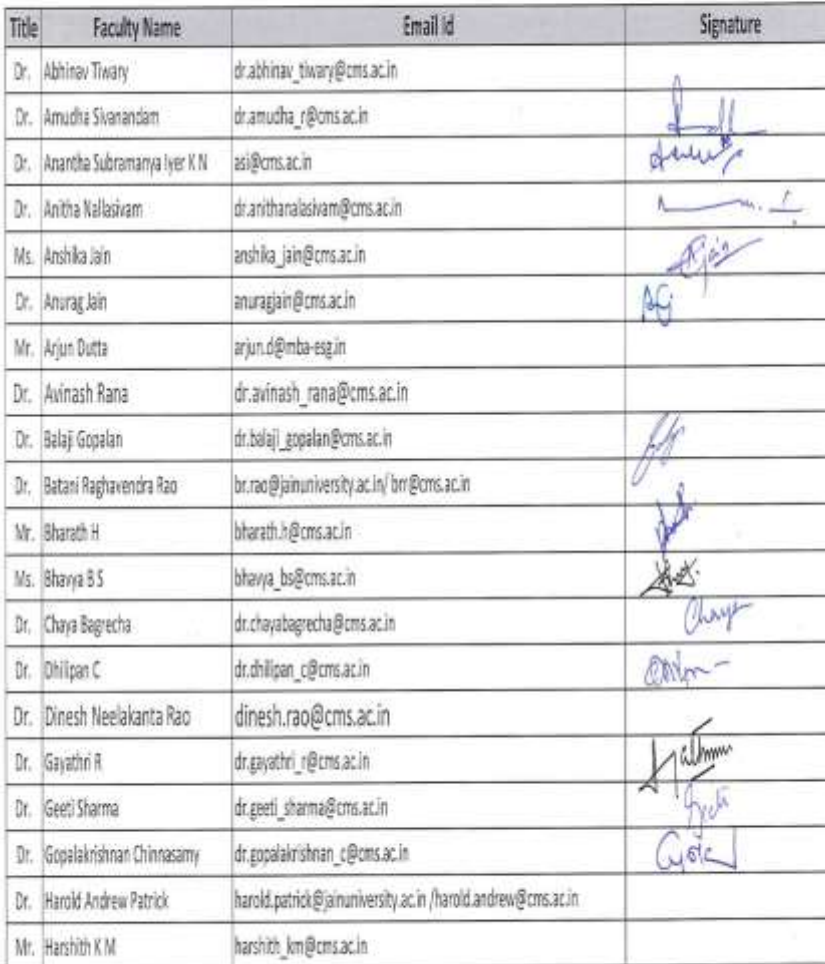 Title Faculty Name Email Id Signature
Dr. Abhinav Tiwary dr.abhinav_tiwary@cms.ac.in
Dr. Amudha Sivanandam dr.amudha_r@cms.ac.in
Dr. Anantha Subramanya Iyer K N asi@cms.ac.in
Dr. Anitha Nallasivam dr.anithanalasivam@cms.ac.in
Ms. Anshika Jain anshika_jain@cms.ac.in Jain
Dr. Anurag Jain anuragjain@cms.ac.in
Mr. Arjun Dutta arjun.d@mba-esg.in
Dr. Avinash Rana dr.avinash_rana@cms.ac.in
Dr. Balaji Gopalan dr.balaji_gopalan@cms.ac.in
Dr. Batani Raghavendra Rao br.rao@jainuniversity.ac.in/ brr@cms.ac.in
Mr. Bharath H bharath.h@cms.ac.in
Ms. Bhavya B S bhavya_bs@cms.ac.in
Dr. Chaya Bagrecha dr.chayabagrecha@cms.ac.in Chaya
Dr. Dhilipan C dr.dhilipan_c@cms.ac.in
Dr. Dinesh Neelakanta Rao dinesh.rao@cms.ac.in
Dr. Gayathri R dr.gayathri_r@cms.ac.in
Dr. Geeti Sharma dr.geeti_sharma@cms.ac.in Geeti
Dr. Gopalakrishnan Chinnasamy dr.gopalakrishnan_c@cms.ac.in
Dr. Harold Andrew Patrick harold.patrick@jainuniversity.ac.in /harold.andrew@cms.ac.in
Mr. Harshith K M harshith_km@cms.ac.in